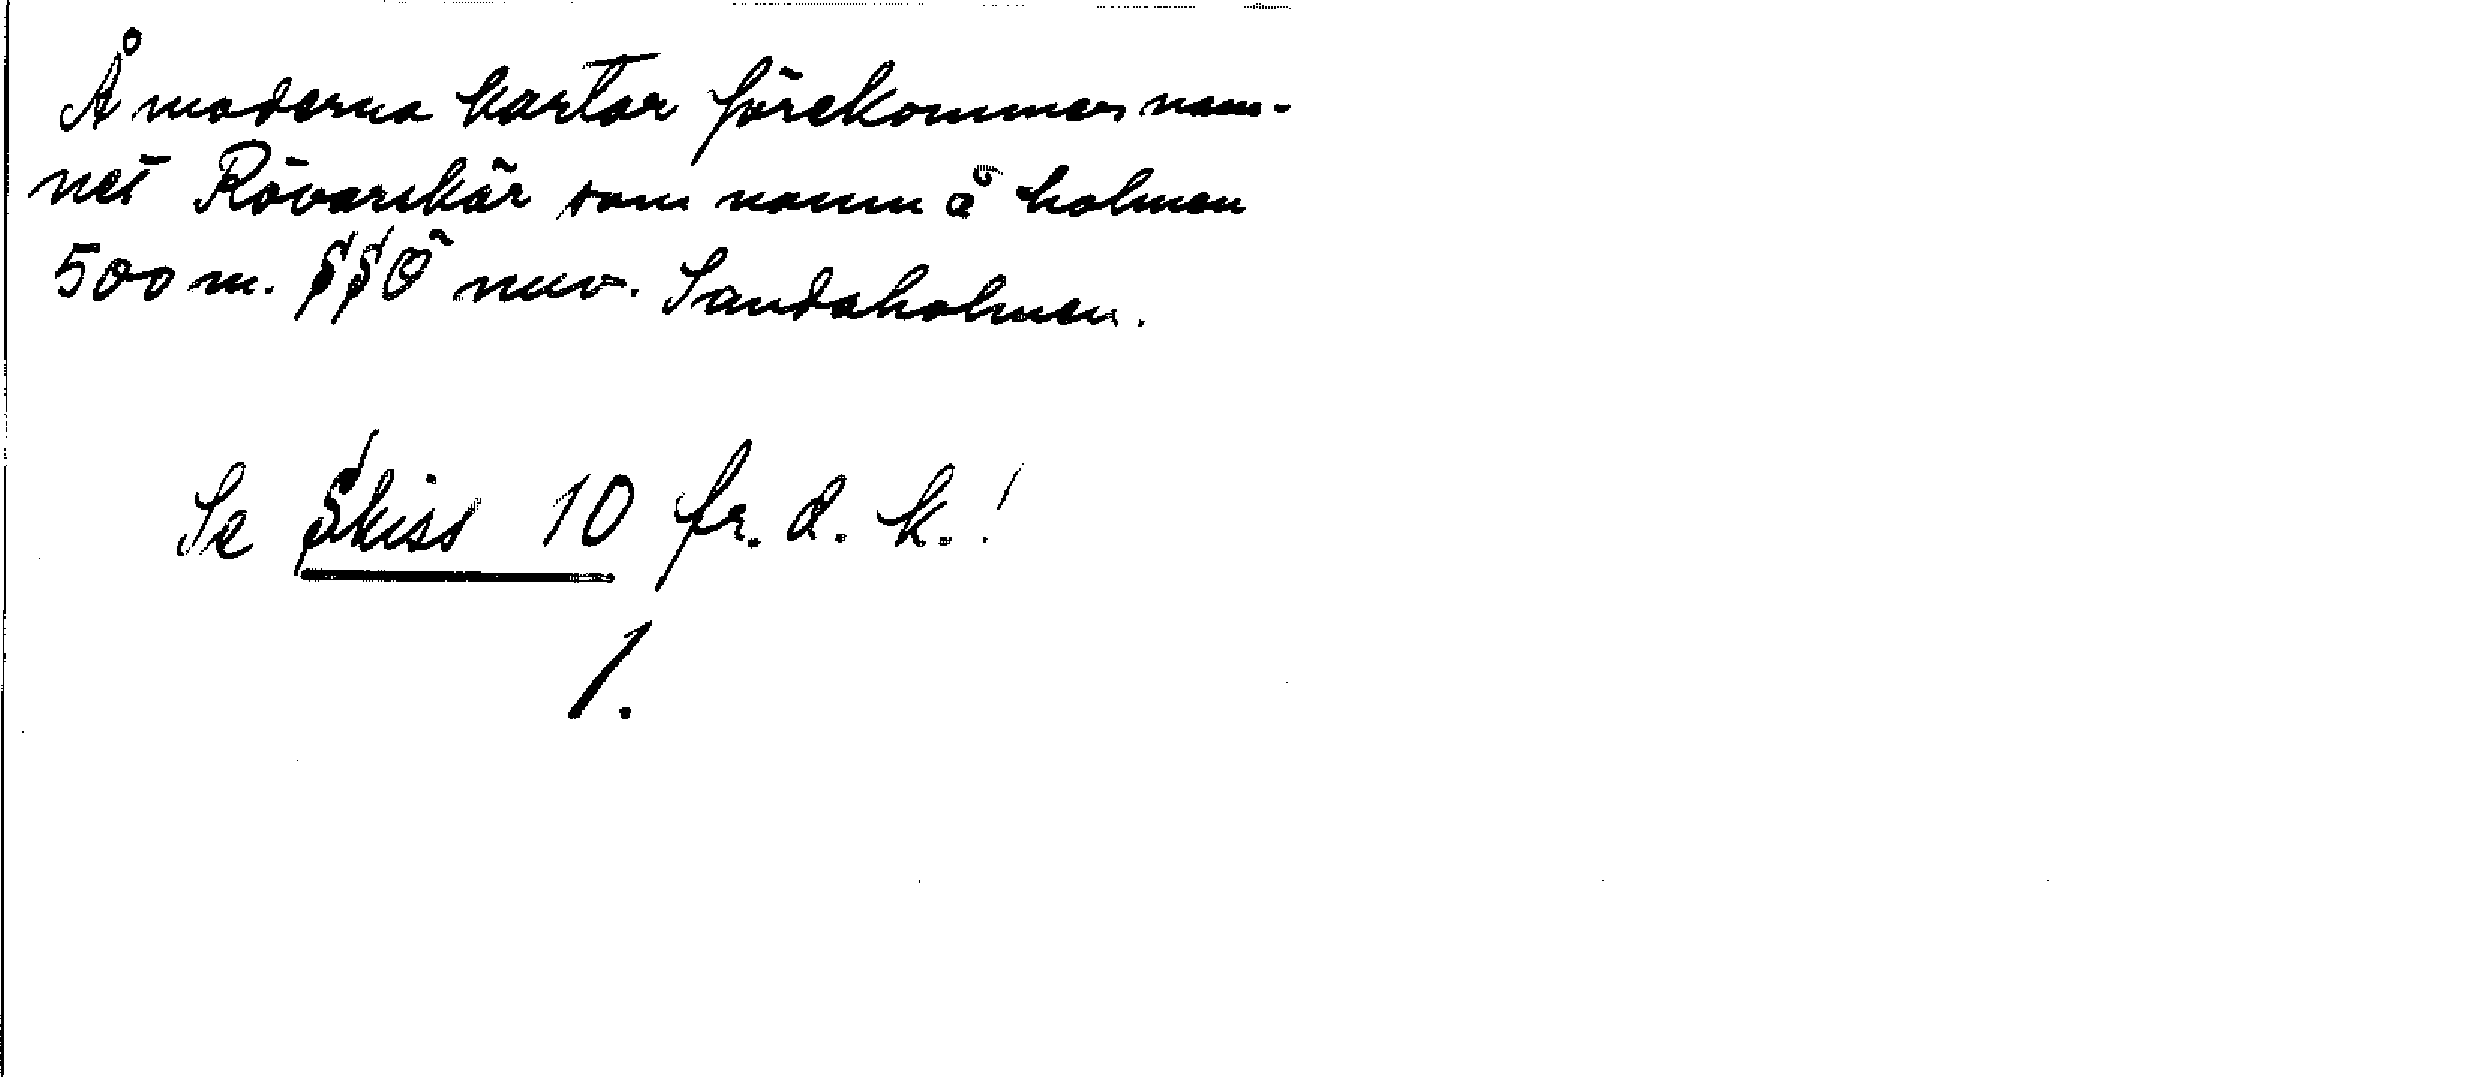 Å moderna kartor förekommer nam-
net Rövarskär som namn å holmen
500 m. SSÖ nuv. Sandaholmen.
Se Skiss 10 fr. d. k.!
1.